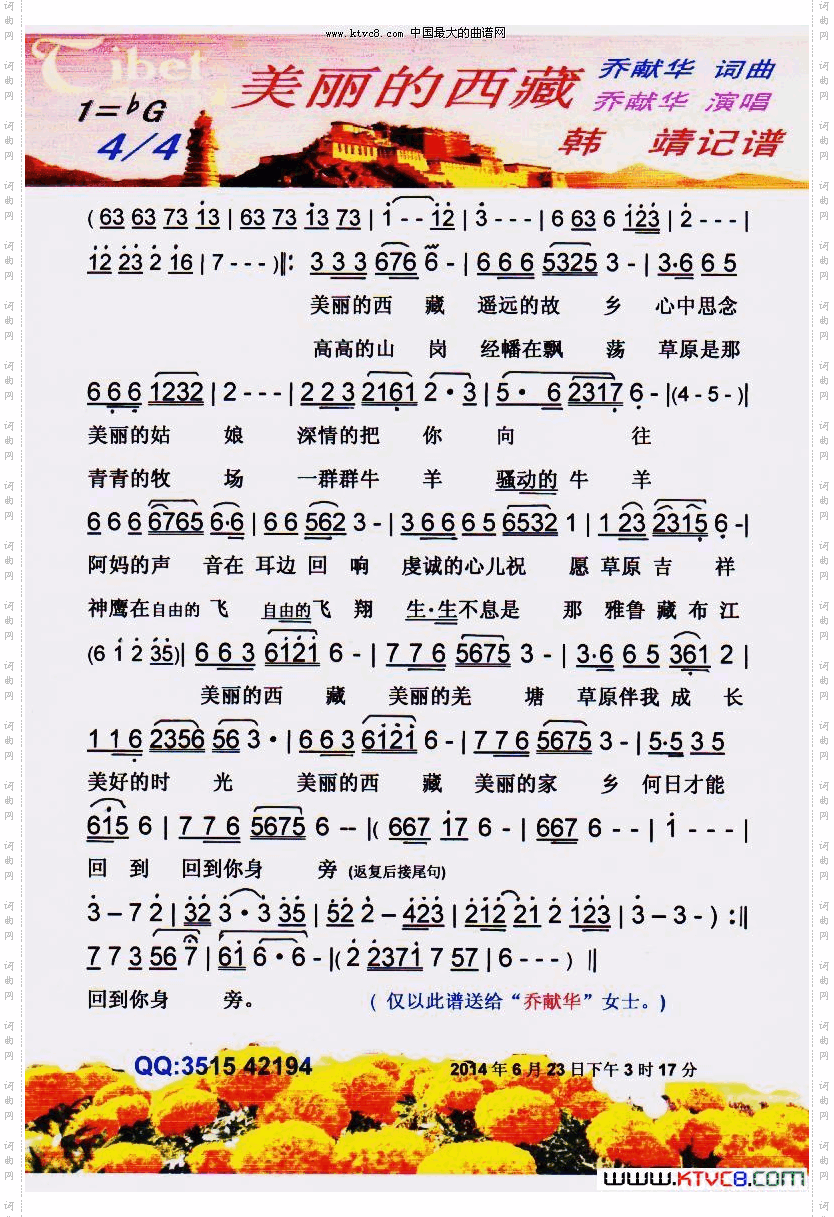 www.ktvc8.com 中国最大的曲谱网
Tibet
美丽的西藏
乔献华 词曲
1=♭G
乔献华 演唱
4/4
韩 靖记谱
( 63 63 73 1̇3 | 63 73 1̇3 73 | 1̇ - - 1̇2̇ | 3̇ - - - | 6 63 6 1̇2̇3̇ | 2̇ - - - |
1̇2̇ 2̇3̇ 2̇ 1̇6 | 7 - - - )‖: 3 3 3 676 6 - | 6 6 6 5325 3 - | 3·6 6 5
美丽的西 藏 遥远的故 乡 心中思念
高高的山 岗 经幡在飘 荡 草原是那
6 6̣ 6̣ 1232 | 2 - - - | 2 2 3 216̣1 2 · 3 | 5 · 6̣ 2317̣ 6̣ - |(4 - 5 - )|
美丽的姑 娘 深情的把 你 向 往
青青的牧 场 一群群牛 羊 骚动的 牛 羊
6 6 6 6765 6·6 | 6 6 562 3 - | 3 6 6 6 5 6532 1 | 1 23 2315̣ 6̣ -|
阿妈的声 音在 耳边 回 响 虔诚的心儿祝 愿 草原 吉 祥
神鹰在自由的 飞 自由的飞 翔 生·生不息是 那 雅鲁 藏 布 江
(6 1̇ 2̇ 3̇5̇)| 6 6 3 61̇2̇1̇ 6 - | 7 7 6 5675 3 - | 3·6 6 5 36̣1 2 |
美丽的西 藏 美丽的羌 塘 草原伴我 成 长
1 1 6̣ 2356 56 3 · | 6 6 3 61̇2̇1̇ 6 - | 7 7 6 5675 3 - | 5·5 3 5
美好的时 光 美丽的西 藏 美丽的家 乡 何日才能
61̇5 6 | 7 7 6 5675 6 -- |( 667 1̇7 6 - | 667 6 - - | 1̇ - - - |
回 到 回到你身 旁 (返复后接尾句)
3̇ – 7 2̇ | 3̇2̇ 3̇ · 3̇ 3̇5̇ | 5̇2̇ 2̇ – 4̇2̇3̇ | 2̇1̇2̇ 2̇1̇ 2̇ 1̇2̇3̇ | 3̇ – 3̇ - ) :‖
7 7 3 56 7 | 61̇ 6 · 6 - |( 2̇ 2̇3̇71̇ 7 57 | 6 - - - ) ‖
回到你身 旁。 ( 仅以此谱送给“乔献华”女士。)
QQ:3515 42194 2014 年 6 月 23 日下午 3 时 17 分
www.KTVC8.com